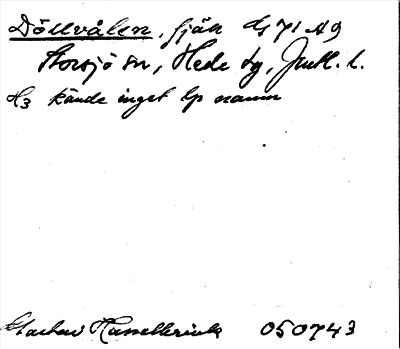 Döllvålen, fjäll dg 71 A9
Storsjö sn, Hede tg, Jmtl. l.
H3 kände inget lp namn
Gustav Hasselbrink 050743